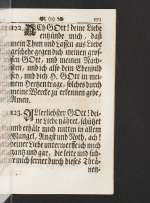 193
122. ACh GOtt! deine Liebe
entzünde mich, daß
mein Thun und Lassen aus Liebe
geschehe gegen dich meinen grossen
GOtt, und meinen Nechsten,
und ich also dein Ebenbild
und dich H. GOtt in meinem
Hertzen trage, solches durch
meine Wercke zu erkennen gebe,
Amen.
123. ALlerliebster GOtt! deine
Liebe nähret, schützet
und erhält mich mitten in allem
Mangel, Angst und Noth, ach!
deiner Liebe unterwerffe ich mich
gantz und gar, die leite und führe
mich ferner durch dieses Thränen-